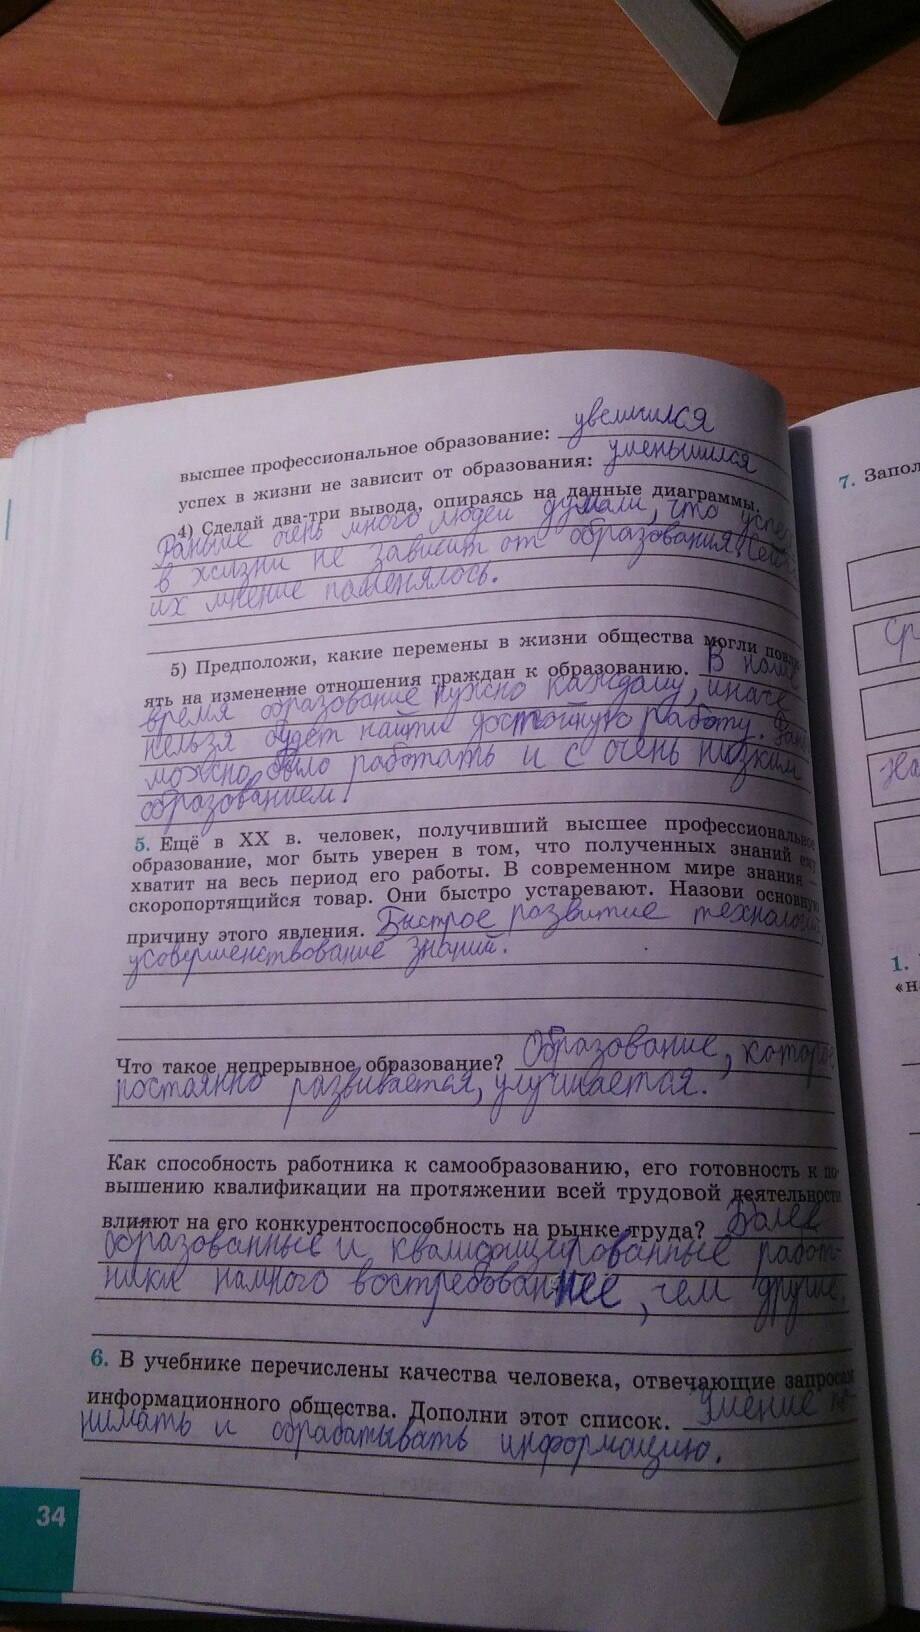 высшее профессиональное образование: увеличился
успех в жизни не зависит от образования: уменьшился
4) Сделай два-три вывода, опираясь на данные диаграммы.
Раньше очень много людей думали, что успех
в жизни не зависит от образования.
их мнение поменялось.
5) Предположи, какие перемены в жизни общества могли повли-
ять на изменение отношения граждан к образованию. В наше
время образование нужно каждому, иначе
нельзя будет найти достойную работу.
можно было работать и с очень низким
образованием!
5. Ещё в XX в. человек, получивший высшее профессиональное
образование, мог быть уверен в том, что полученных знаний ему
хватит на весь период его работы. В современном мире знания —
скоропортящийся товар. Они быстро устаревают. Назови основную
причину этого явления. Быстрое развитие технологий,
усовершенствование знаний.
Что такое непрерывное образование? Образование, которое
постоянно развивается, улучшается.
Как способность работника к самообразованию, его готовность к по-
вышению квалификации на протяжении всей трудовой деятельности
влияют на его конкурентоспособность на рынке труда? Более
образованные и квалифицированные работ-
ники намного востребованнее, чем другие.
6. В учебнике перечислены качества человека, отвечающие запросам
информационного общества. Дополни этот список. Умение по-
нимать и обрабатывать информацию.
34
7. Запол
Ср
На
1.
«н